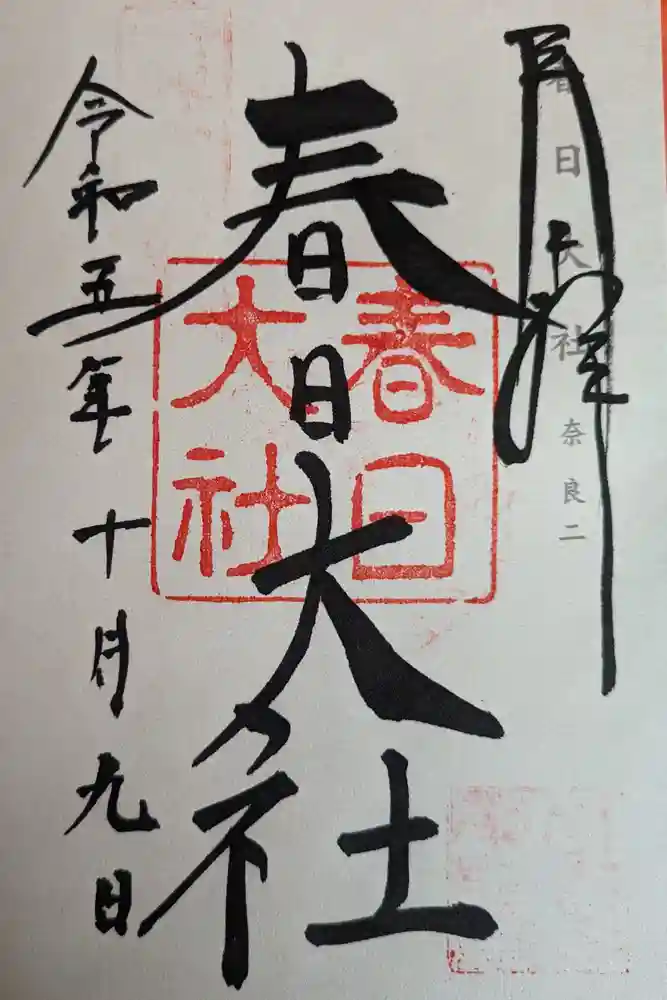 春日大社 奈良二
春日大社
春日
大社
令和五年十月九日